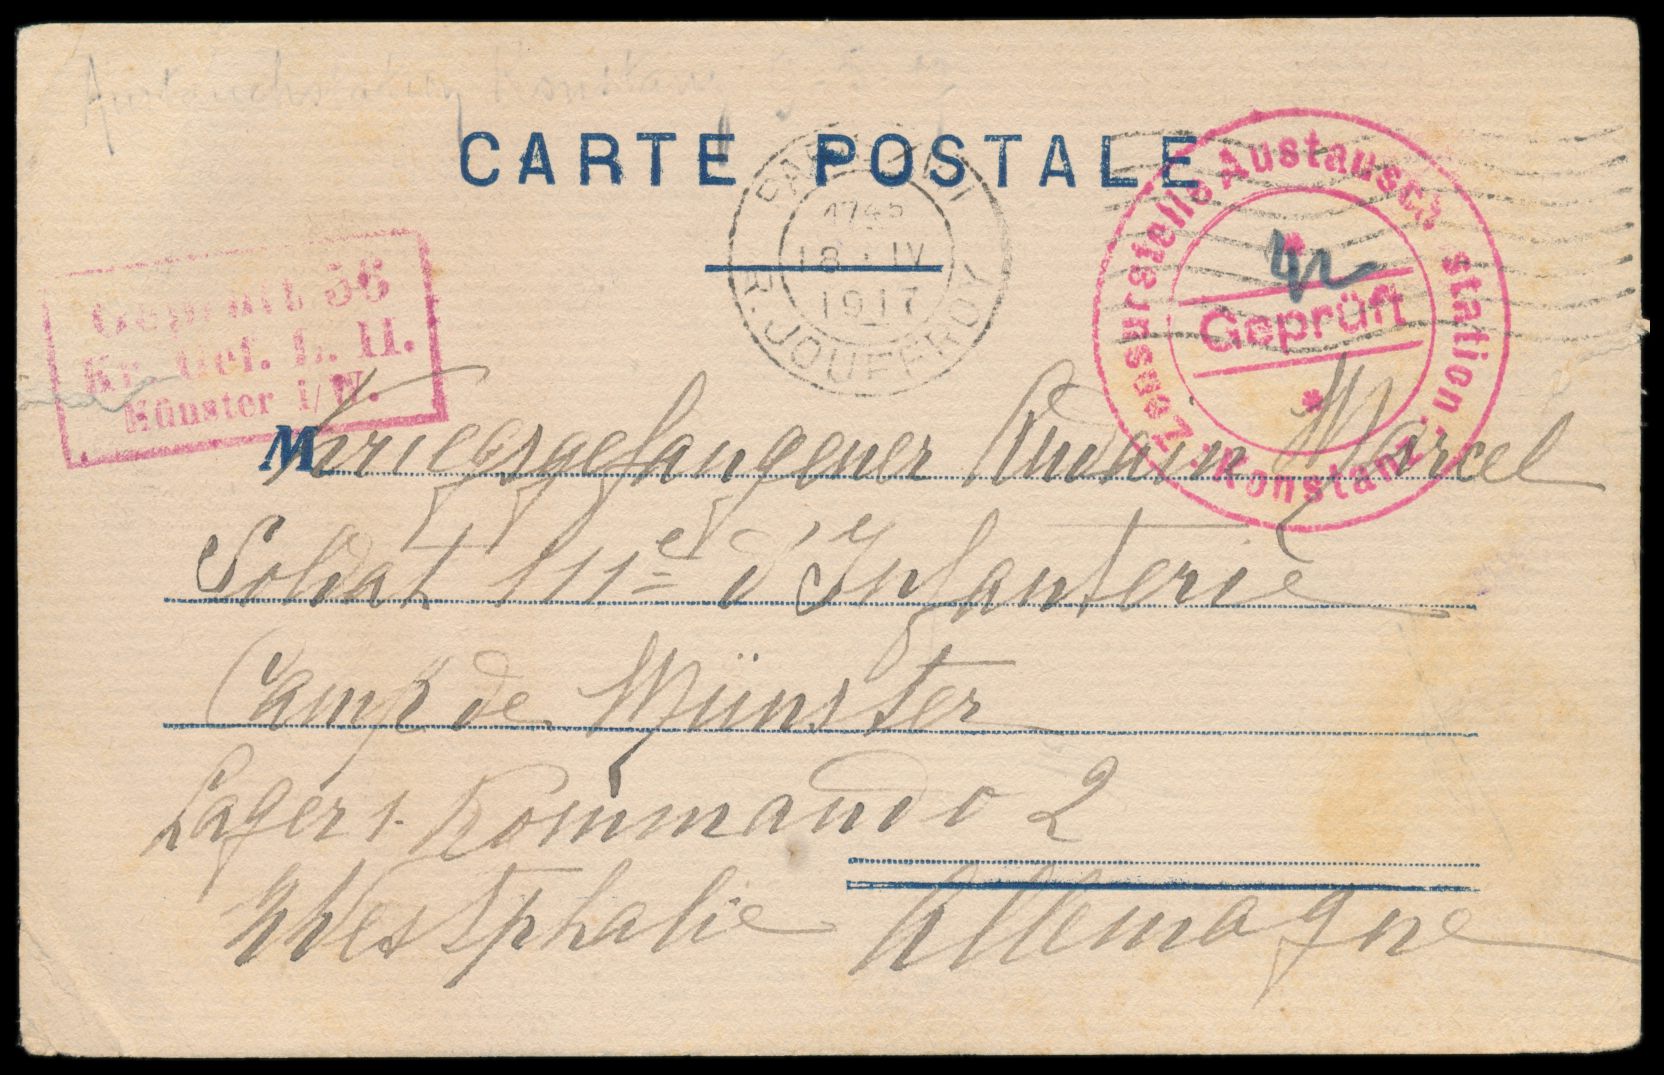 Austauchstation Konstanz
CARTE POSTALE
PARIS XI
1745
18 · IV
1917
R. JOUFFROY
Zensurstelle Austausch station
Konstanz
Geprüft
Geprüft 56
Kr. Gef. L. II.
Münster i/W.
M Kriegsgefangener Audain Marcel
Soldat 111e d'Infanterie
Camp de Münster
Lager 1. Kommando 2
Westphalie - Allemagne